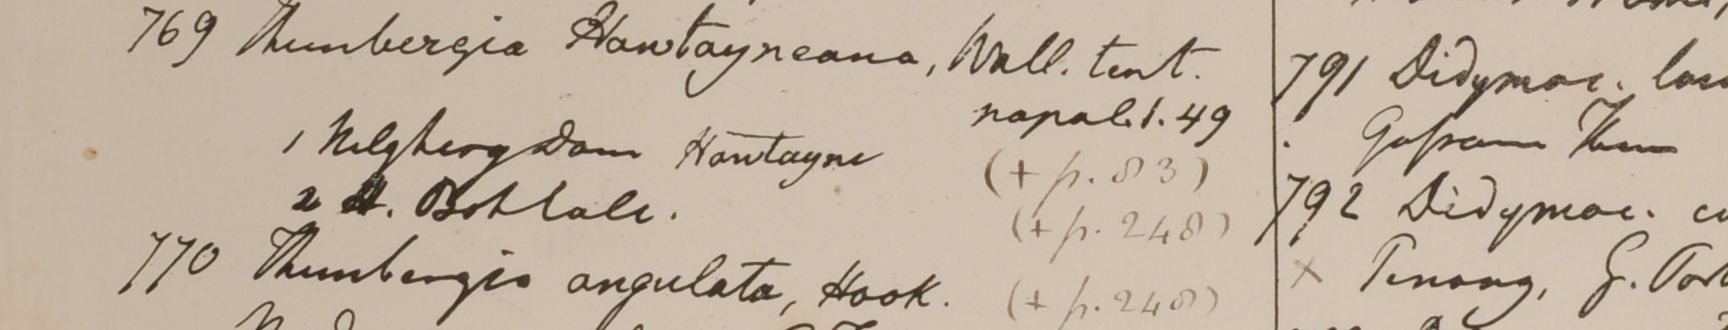 769 Thunbergia Hawtayneana, Wall. tent.
napal. 1. 49
1 Nilgherry Dom Hawtayne
(+ p. 83)
2 H. Bot. Calc.
(+ p. 248)
770 Thunbergia angulata, Hook. (+ p. 248)
791 Didymoc.
792 Didymoc.
× Penang, G.